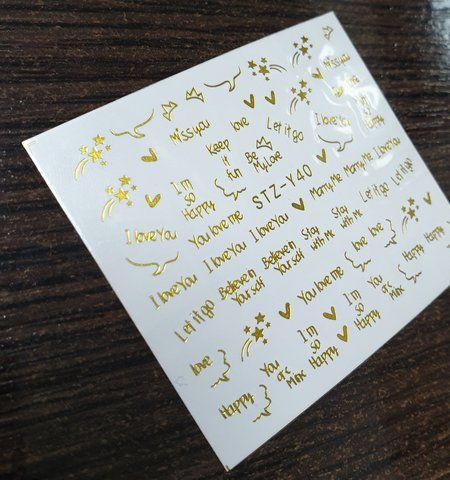 Miss you
Miss you
Keep it fun
love
Let it go
I love You
I'm so Happy
I'm so Happy
Be My Love
STZ-Y40
Marry Me
Marry Me
I love You
I love You
You love me
I love You
I love You
Let it go
Let it go
I love You
Believe in Yourself
Believe in Yourself
Stay with Me
Stay with Me
Let it go
You love me
love
love
Happy
Happy
love
You are Mine
I'm so Happy
I'm so Happy
You are Mine
Happy